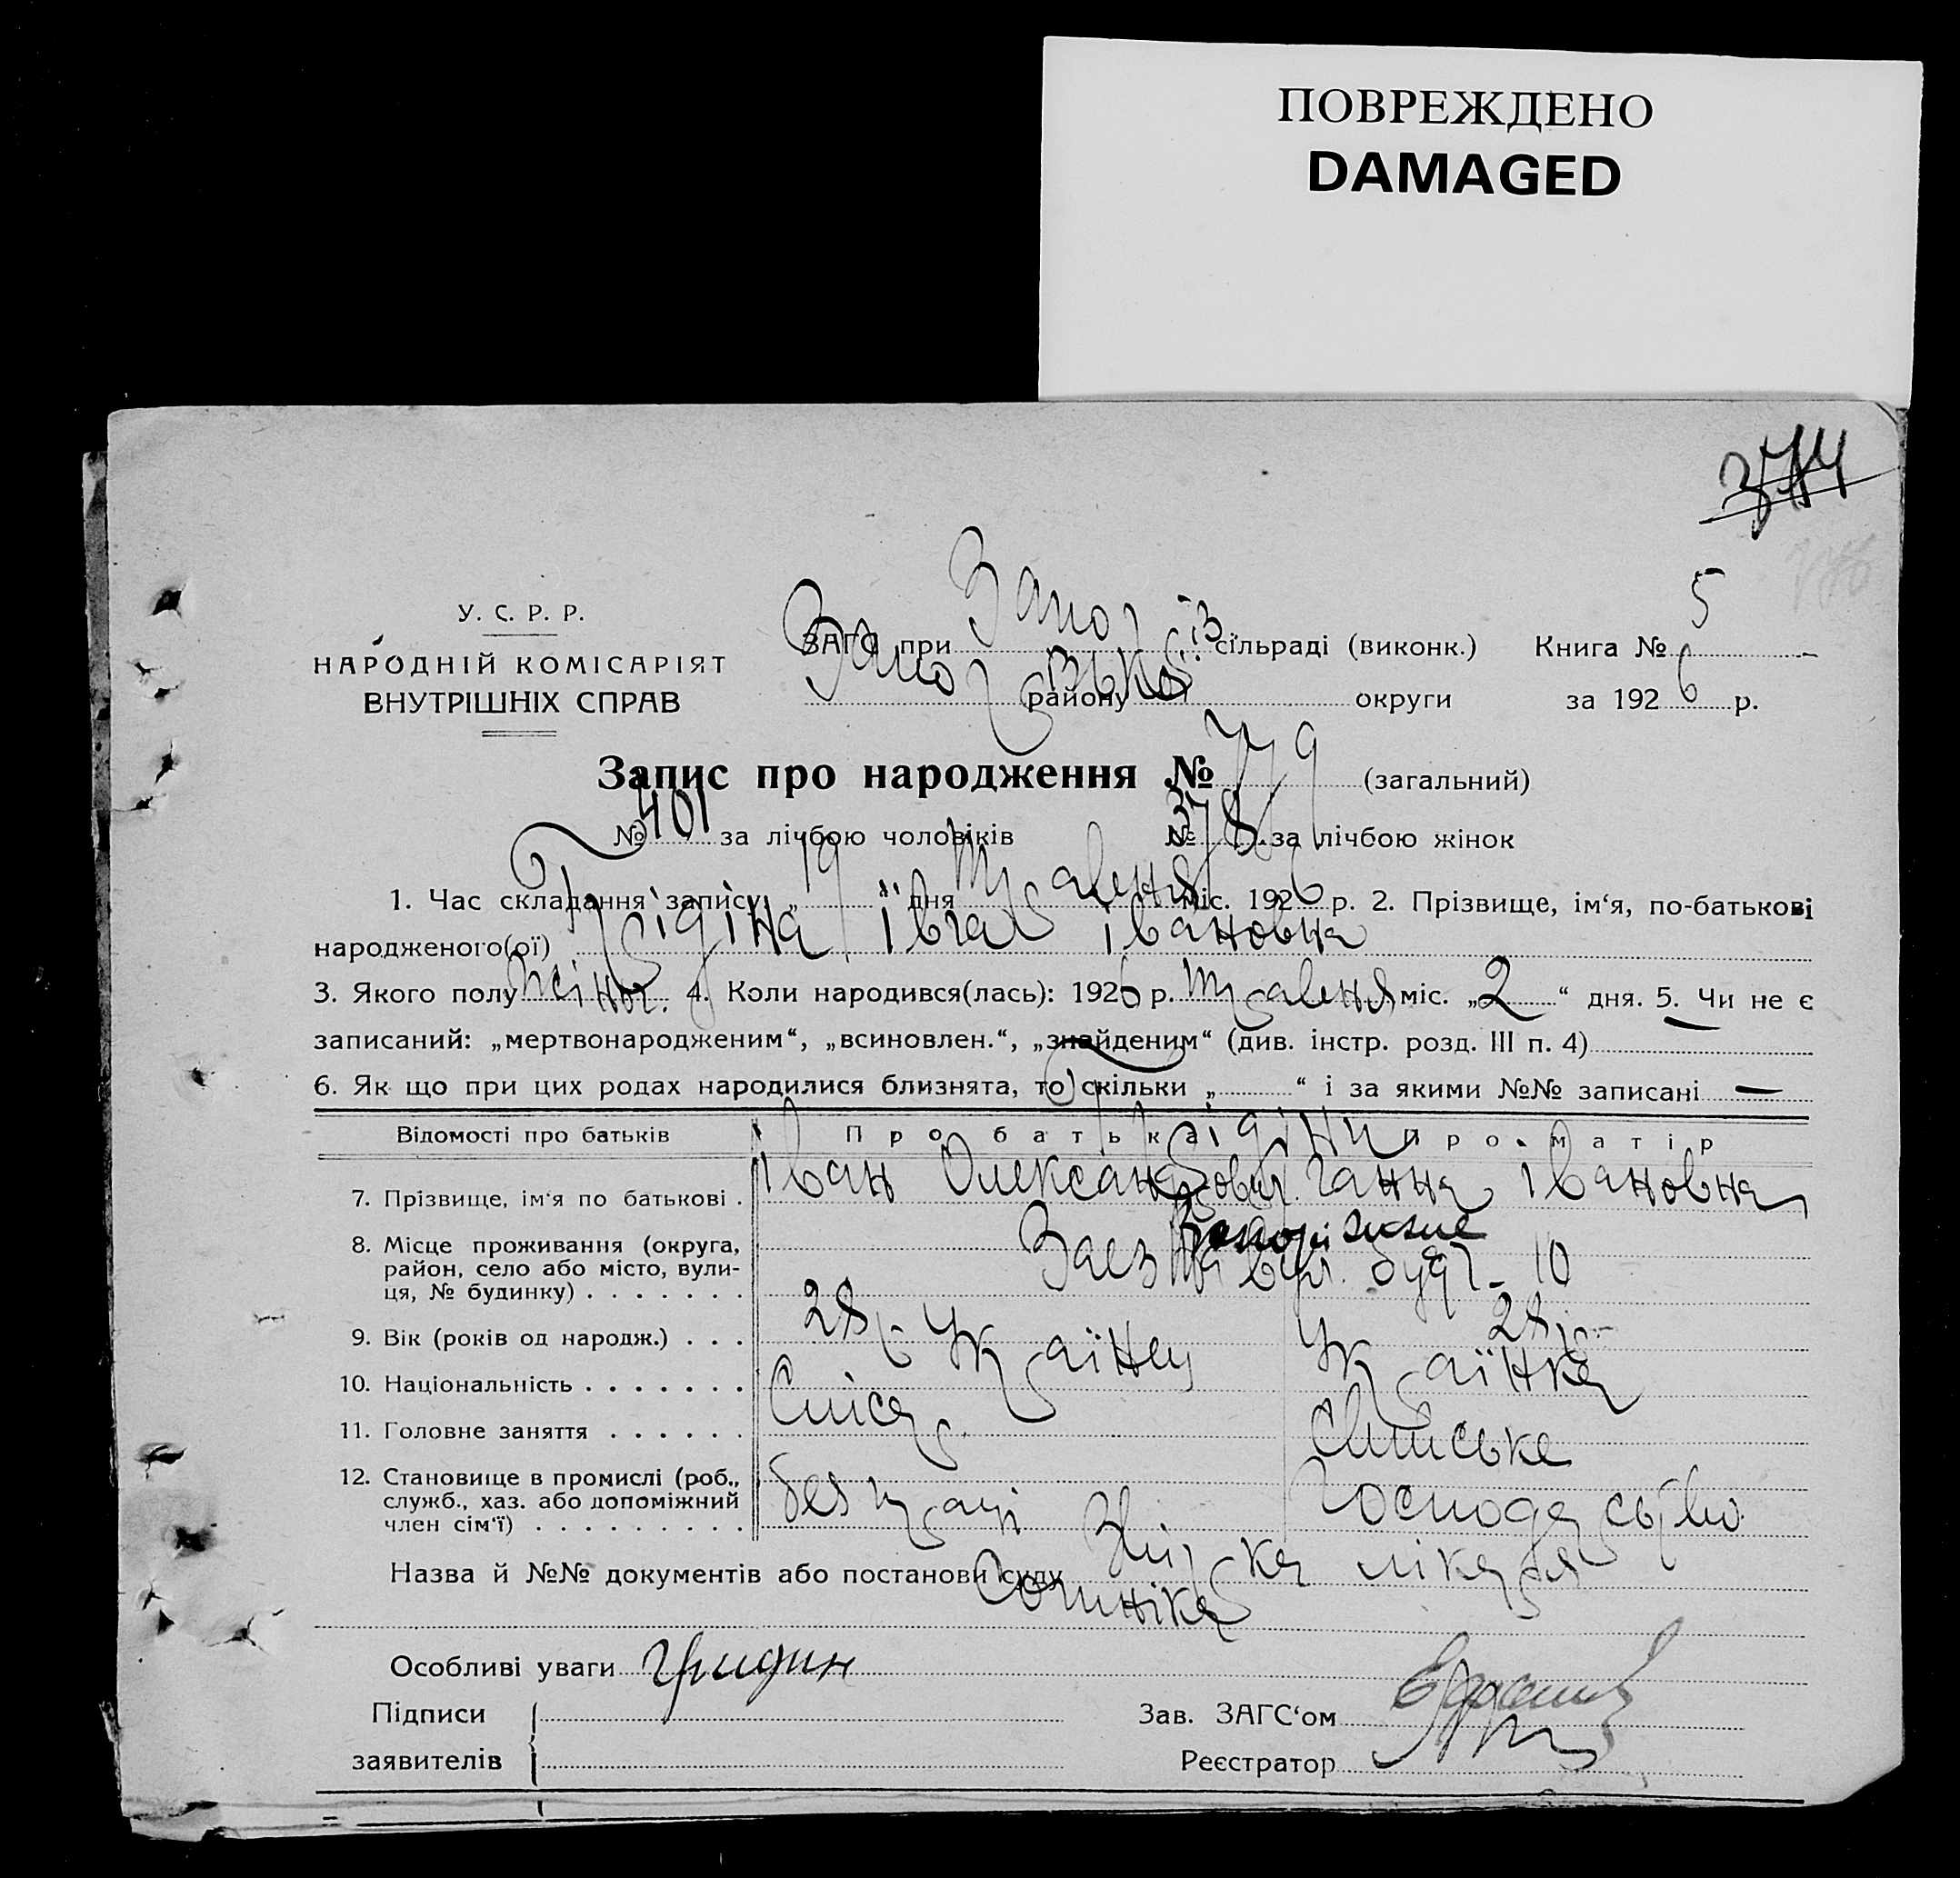 ПОВРЕЖДЕНО
DAMAGED
374
5
У. С. Р. Р.
НАРОДНІЙ КОМІСАРІЯТ
ВНУТРІШНІХ СПРАВ
ЗАГС при Запоріз. сільраді (виконк.) Книга №
району округи за 1926 р.
Запис про народження № 779 (загальний)
№ 401 за лічбою чоловіків № 378 за лічбою жінок
1. Час складання запису: „19“ дня травеня міс. 1926 р. 2. Прізвище, ім‘я, по-батькові
народженого(ої) Грідіна Івга Івановна
3. Якого полу жіноч. 4. Коли народився(лась): 1926 р. травеня міс. „2“ дня. 5. Чи не є
записаний: „мертвонародженим“, „всиновлен.“, „знайденим“ (див. інстр. розд. III п. 4)
6. Як що при цих родах народилися близнята, то скільки „ “ і за якими №№ записані —
Відомості про батьків Про батька Про матір
Грідіни
7. Прізвище, ім‘я по батькові . Іван Олександрович. Ганна Івановна
8. Місце проживання (округа, район, село або місто, вули-ця, № будинку) . . . . . . . Запоріжжє
вул. буд. 10
9. Вік (років од народж.) . . . 28 р. 28 р.
10. Національність . . . . . . . Українец Українка
11. Головне заняття . . . . . . Слісар. Хатнське
12. Становище в промислі (роб., служб., хаз. або допоміжний член сім‘ї) . . . . . . . . . без праці господарство
Назва й №№ документів або постанови суду лікаря
Особливі уваги Гридин
Підписи
заявителів
Зав. ЗАГС‘ом
Реєстратор